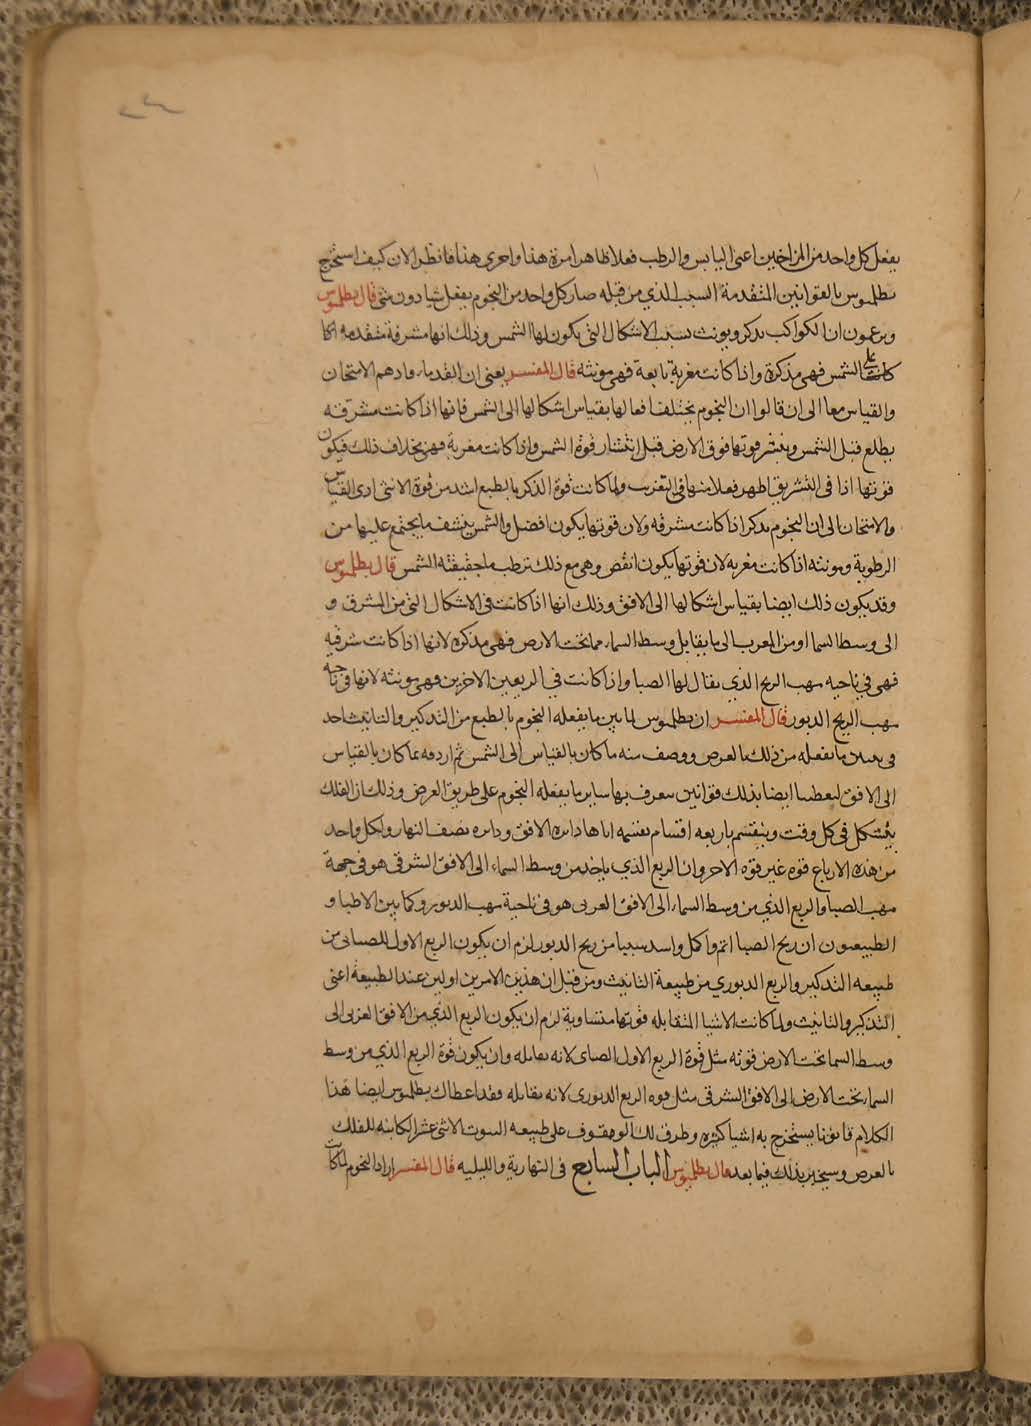 يفعل كل واحد من المزاجين اعنى اليابس والرطب فعلا ظاهرا مرة هذا واخرى هذا فانظر الان كيف استخرج
بطلميوس بالقوانين المتقدمة السبب الذي من قبله صار كل واحد من النجوم يفعل شيا دون شي قال بطلميوس
ويزعمون ان الكواكب تذكر وتونث بسبب الاشكال التي يكون لها الشمس وذلك انها مشرقة متقدمه اذا
كانت على الشمس فهي مذكرة واذا كانت مغربة تابعة فهي مونثه قال المفسر يعنى ان القدماء قادهم الامتحان
والقياس معا الى ان قالوا ان النجوم يختلف افعالها بقياس اشكالها الى الشمس فانها اذا كانت مشرقه
يطلع قبل الشمس وينتشر قوتها فوق الارض قبل انتشار قوة الشمس واذا كانت مغربة فهي بخلاف ذلك فيكون
قوتها اذا في التشريق اظهر فعلا منها في التغريب ولما كانت قوة الذكر بالطبع اشد من قوة الانثى ادى القياس
والامتحان الى ان النجوم تذكر اذا كانت مشرقه ولان قوتها يكون افضل والشمس ينشف ما يجتمع عليها من
الرطوبة ومونثه اذا كانت مغربه لان قوتها يكون انقص وهي مع ذلك ترطب ما جففته الشمس قال بطلميوس
وقد يكون ذلك ايضا بقياس اشكالها الى الافق وذلك انها اذا كانت في الاشكال التي من المشرق و
الى وسط السما او من المغرب الى ما يقابل وسط السماء مما تحت الارض فهي مذكره لانها اذا كانت شرقيه
فهي في ناحيه مهب الريح الذي يقال لها الصبا واذا كانت في الربعين الاخرين فهي مونثه لانها في ناحيه
مهب الريح الدبور قال المفسر ان بطلميوس لما بين ما يفعله النجوم بالطبع من التذكير والتانيث اخذ
في تبيين ما يفعله من ذلك بالعرض ووصف منه ما كان بالقياس الى الشمس ثم اردفه بما كان بالقياس
الى الافق ليعطينا ايضا بذلك قوانين يتعرف بها ساير ما يفعله النجوم على طريق العرض وذلك ان الفلك
يتشكل في كل وقت وينقسم باربعه اقسام تقسمه اياها دائره الافق ودائره نصف النهار ولكل واحد
من هذه الارباع قوه غير قوه الاخر وان الربع الذي ياخذ من وسط السماء الى الافق الشرقى هو في جهة
مهب الصبا والربع الذي من وسط السماء الى الافق الغربى هو في ناحية مهب الدبور وكما بين الاطبا و
الطبيعيون ان ريح الصبا اتم واكمل واشد سببا من ريح الدبور لزم ان يكون الربع الاول الصبائى من
طبيعه التذكير والربع الدبوري من طبيعة التانيث ومن قبل ان هذين الامرين اولين عند الطبيعة اعنى
التذكير والتانيث ولما كانت الاشيا المتقابله قوتها متساوية لزم ان يكون الربع الذي من الافق الغربى الى
وسط السما تحت الارض قوته مثل قوة الربع الاول الصبائى لانه يقابله وان يكون قوة الربع الذي من وسط
السماء تحت الارض الى الافق الشرقى مثل قوه الربع الدبورى لانه يقابله فقد اعطاك بطلميوس ايضا هذا
الكلام قانونا يستخرج به اشيا كثيره وطرق لك الوقوف على طبيعه البيوت الاثنى عشر الكائنه للفلك
بالعرض وسيخبر بذلك فيما بعد قال بطلميوس الباب السابع في النهارية والليليه قال المفسر اراد النجوم لما كانت